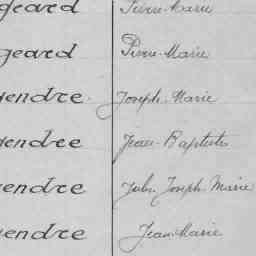 geard Pierre-Marie
geard Pierre-Marie
gendre. Joseph-Marie
gendre Jean-Baptiste
gendre Jules Joseph Marie
gendre Jean-Marie